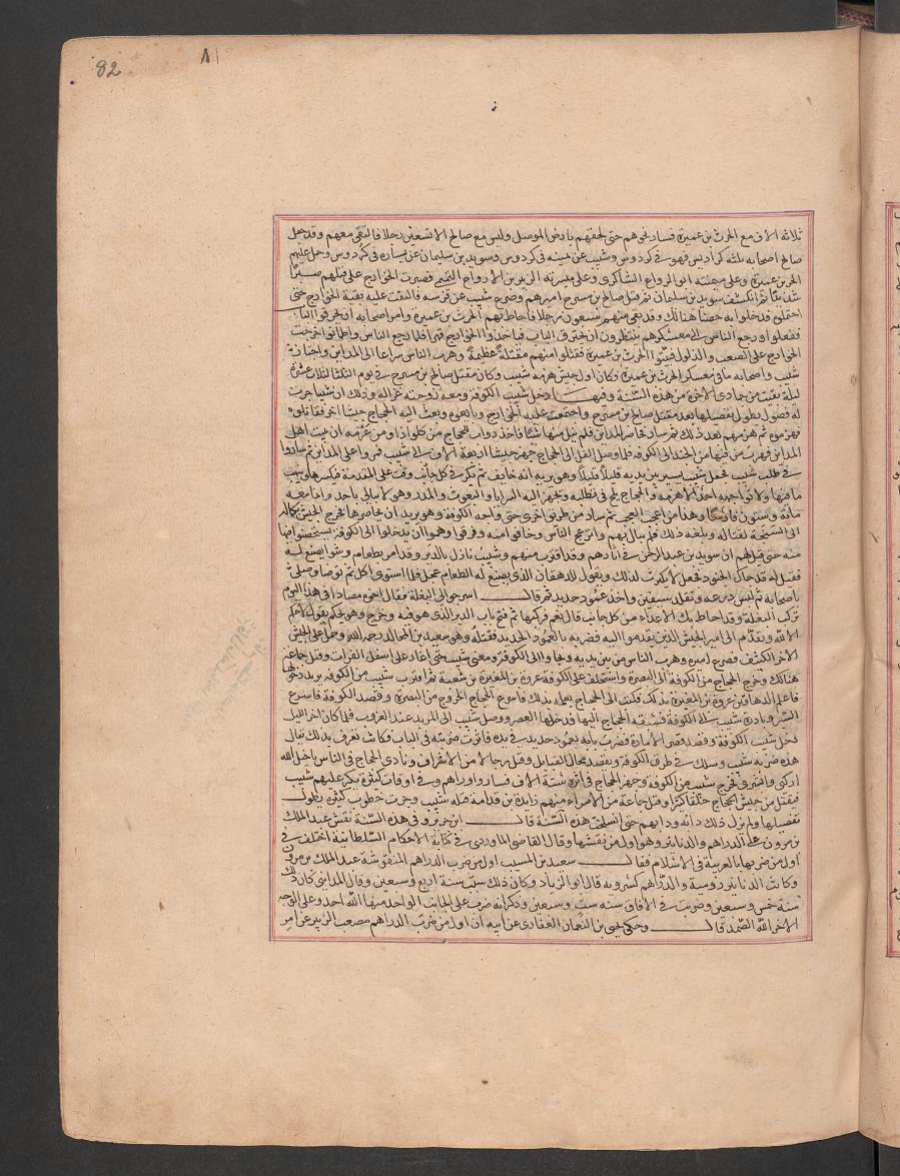 82 ٨١
ثلاثة الاف مع الحرث بن عميرة فسار نحوهم حتى لحقهم بارض الموصل وليس مع صالح الا تسعين رجلا فالتقى معهم وقد جعل
صالح اصحابه ثلثة كراديس فهو في كردوس وشبيب عن يمينه في كردوس وسويد بن سليمان عن يساره في كردوس وحمل عليهم
الحرث بن عميرة وعلى ميمنته ابو الرواع الشاكرى وعلى ميسرته الزبير بن الارواح التميمى فصبرت الخوارج على قتلهم صبرًا
شديدًا ثم انكشف سويد بن سليمان ثم قتل صالح بن مسرح اميرهم وصرع شبيب عن فرسه فالتفت عليه بقية الخوارج حتى
احتملوه فدخلوا به حصنا هنالك وقد بقي منهم سبعون رجلا فاحاط بهم الحرث بن عميرة وامر اصحابه ان يحرقوا الباب
ففعلوا ورجع الناس الى معسكرهم ينتظرون ان يحترق الباب فياخذوا الخوارج قهرا فلما رجع الناس واطمانوا خرجت
الخوارج على الصعب والذلول فبيتوا الحرث بن عميرة فقتلوا منهم مقتلة عظيمة وهرب الناس سراعا الى المداين واحتاز
شبيب واصحابه ما في معسكر الحرث بن عميرة وكان اول جيش هزمه شبيب وكان مقتل صالح بن مسرح في يوم الثلثا لثلاث عشرة
ليلة بقيت من جمادى الاخرة من هذه السنة وفيها دخل شبيب الكوفة ومعه زوجته غزالة وذلك ان شبيبا جرت
له فصول يطول تفصيلها بعد مقتل صالح بن مسرح واجتمعت عليه الخوارج وبايعوه وبعث اليه الحجاج جيشا اخر فقاتلوه
فهزموه ثم هزمهم بعد ذلك ثم سار فحاصر المداين فلم ينل منها شيئا فاخذ دواب للحجاج من كلواذا ومن عزمه ان يبيت اهل
المداين فهرب من فيها من الجند الى الكوفة فلما وصل الفل الى الحجاج جهز جيشا اربعة الاف الى شبيب فمروا على المداين ثم ساروا
في طلب شبيب فجعل شبيب يسير بين يديه قليلا قليلا وهو يريه انه خايف ثم يكر في كل وقت على المقدمة فيكسرها وينهب
ما فيها ولا يواجه احدًا الا هزمه والحجاج يلح في تطلبه ويجهز اليه السرايا والبعوث والمدد وهو لا يبالي باحد وانما معه
مائة وستون فارسًا وهذا من اعجب العجب ثم سار من طريق اخرى حتى واجه الكوفة وهو يريد ان يحاصرها فخرج الجيش بكماله
الى السبخة لقتاله وبلغه ذلك فلم يبال بهم وانزعج الناس وخافوا منه وفرقوا وهموا ان يدخلوا الى الكوفة يتحصنوا فيها
منه حتى قيل لهم ان سويد بن عبد الرحمن في اثارهم وقد اقترب منهم وشبيب نازل بالدير وقد امر بطعام وشوا يصنع له
فقيل له قد جاك الجنود فجعل لا يكترث لذلك ويقول للدهقان الذي يصنع له الطعام عجل فلما استوى اكل ثم توضا وصلى
باصحابه ثم لبس درعه وتقلد سيفين واخذ عمود حديد ثم قال اسرجوا لي البغلة فقال اخوه مصاد افي هذا اليوم
تركب البغلة وقد احاط بك الاعداء من كل جانب قال نعم فركبها ثم فتح باب الدير الذي هو فيه وخرج وهو يحكم يقول لا حكم
الا لله وتقدم الى امير الجيش الذين يقدموا اليه فضربه بالعمود الحديد فقتله وهو سعيد بن المجالد رحمه الله وحمل على الجيش
الاخر الكثيف فصرع اميره وهرب الناس من بين يديه ولجاوا الى الكوفة ومضى شبيب حتى اغار على اسفل الفرات وقتل جماعة
هنالك وخرج الحجاج من الكوفة الى البصرة واستخلف على الكوفة عروة بن المغيرة بن شعبة ثم اقترب شبيب من الكوفة يريد دخولها
فاعلم الدهاقين عروة بن المغيرة بذلك فكتب الى الحجاج يعلمه بذلك فاسرع الحجاج الخروج من البصرة وقصد الكوفة فاسرع
السير وبادره شبيب الى الكوفة فسبقه الحجاج اليها فدخلها العصر ووصل شبيب الى المربد عند الغروب فلما كان اخر الليل
دخل شبيب الكوفة وقصد قصر الامارة فضرب بابه بعمود حديد في يده فاثرت ضربته في الباب وكانت تعرف بذلك يقال
هذه ضربة شبيب وسلك في طرق الكوفة ويقصد محال القبايل وقتل رجالا من الاشراف ونادى الحجاج في الناس ياخيل الله
اركبى وابشرى فخرج شبيب من الكوفة وجهز الحجاج في اثره ستة الاف فساروا وراهم وفي اوقات كثيرة يكر عليهم شبيب
فيقتل من جيش الحجاج خلقا كثيرا وقتل جماعة من الامراء منهم زايدة بن قدامة قتله شبيب وجرت خطوب كثيرة يطول
تفصيلها ولم يزل ذلك دابه ودابهم حتى انسلخت هذه السنة قال ابن جرير وفي هذه السنة نقش عبد الملك
بن مرون على الدراهم والدنانير وهو اول من نقشها وقال القاضى الماوردى في كتابه الاحكام السلطانية اختلف في
اول من ضربها بالعربية في الاسلام فقال سعيد بن المسيب اول من ضرب الدراهم المنقوشة عبد الملك بن مرون
وكانت الدنانير رومية والدراهم كسروية قال ابو الزناد وكان ذلك سنة اربع وسبعين وقال المدايني كان ذلك
سنة خمس وسبعين وضربت في الافاق سنة ست وسبعين وذكر انه ضرب على الجانب الواحد منها الله احد وعلى الوجه
الاخر الله الصمد قال وحكى يحيى بن النعمان الغفارى عن ابيه ان اول من ضرب الدراهم مصعب الزبير عن امر